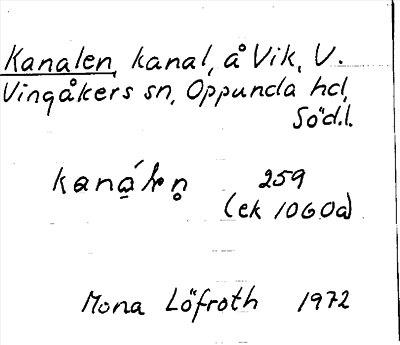 Kanalen, kanal, å Vik, V.
Vingåkers sn, Oppunda hd,
Söd.l.
259
(ek 1060a)
Mona Löfroth 1972